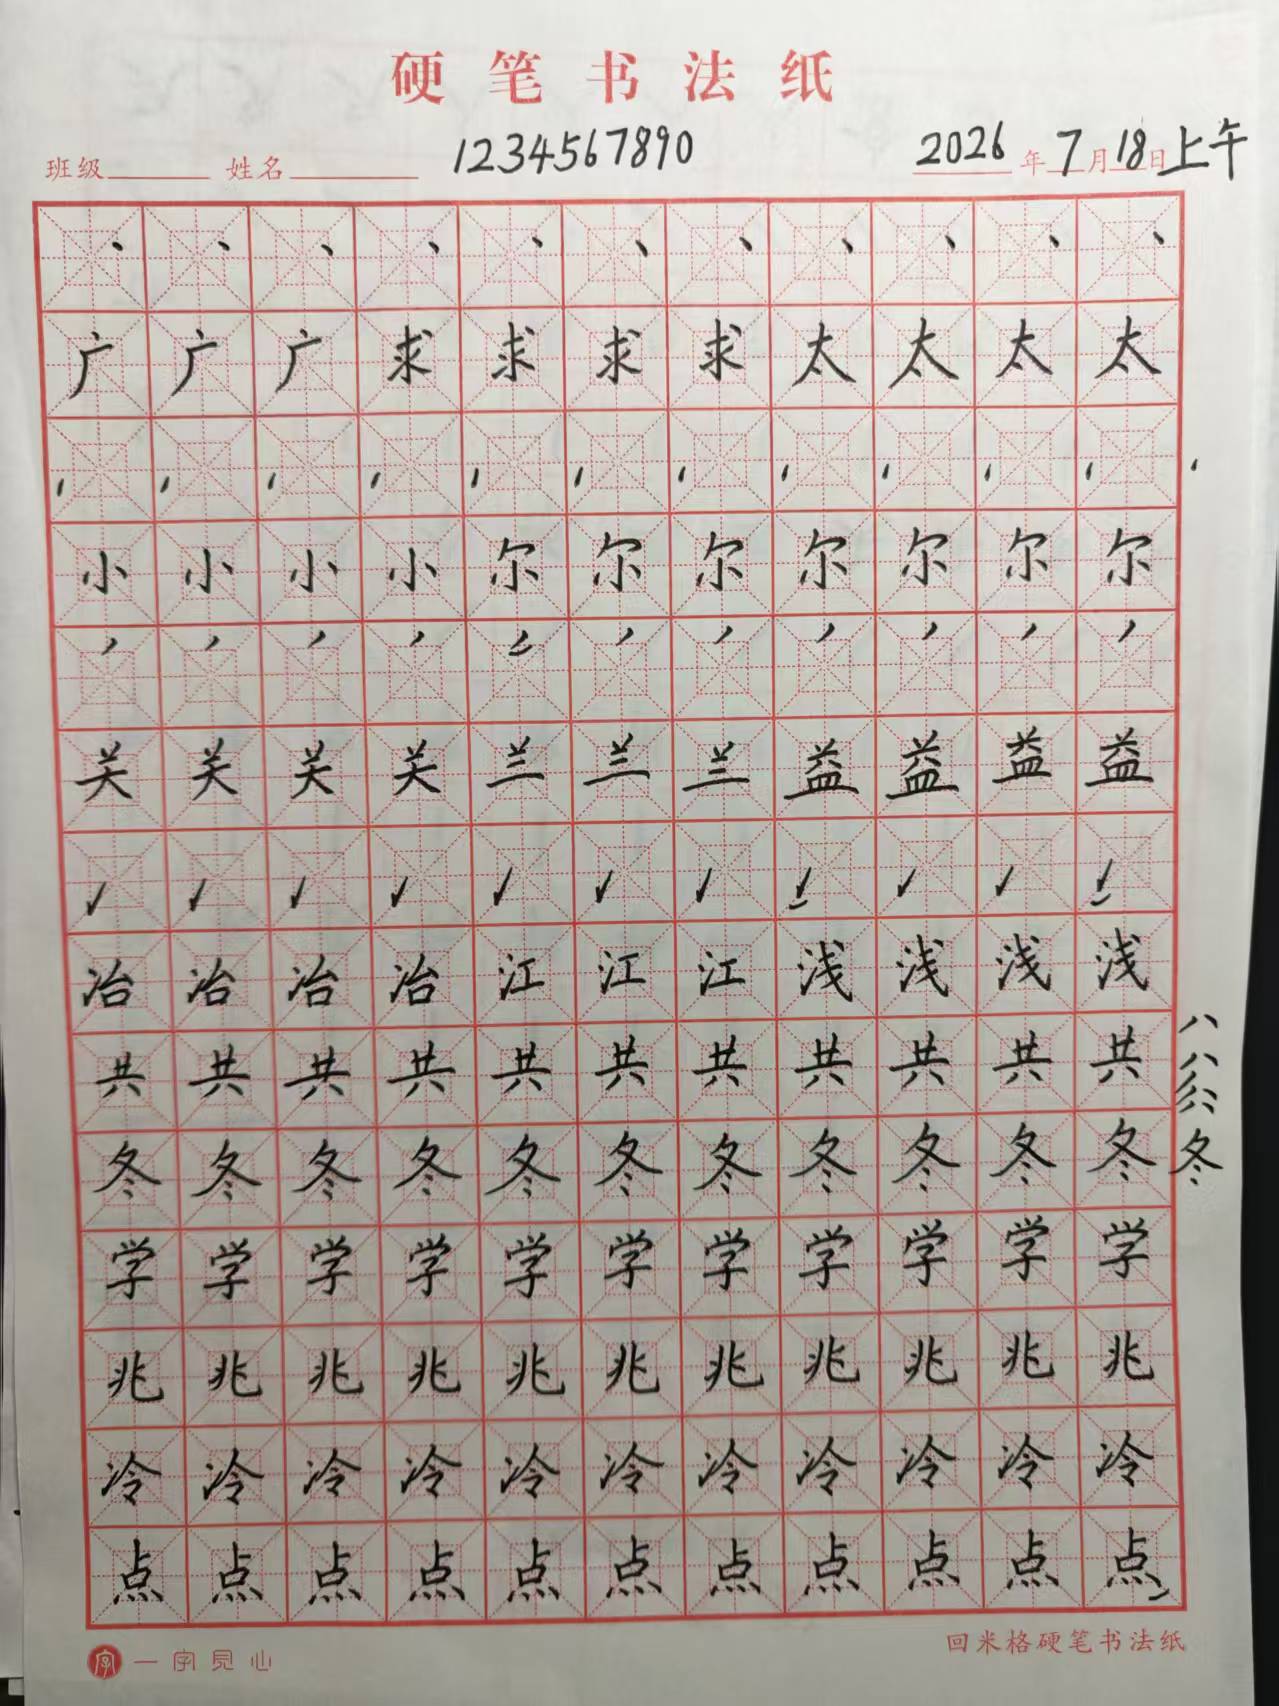 硬笔书法纸
班级 姓名 1234567890 2026年7月18日上午
丶丶丶丶丶丶丶丶丶丶丶
广广广求求求求太太太太
小小小小尔尔尔尔尔尔尔
关关关关兰兰兰益益益益
冶冶冶冶江江江浅浅浅浅
共共共共共共共共共共共
冬冬冬冬冬冬冬冬冬冬冬冬
学学学学学学学学学学学
兆兆兆兆兆兆兆兆兆兆兆
冷冷冷冷冷冷冷冷冷冷冷
点点点点点点点点点点点
字 一字见心
回米格硬笔书法纸